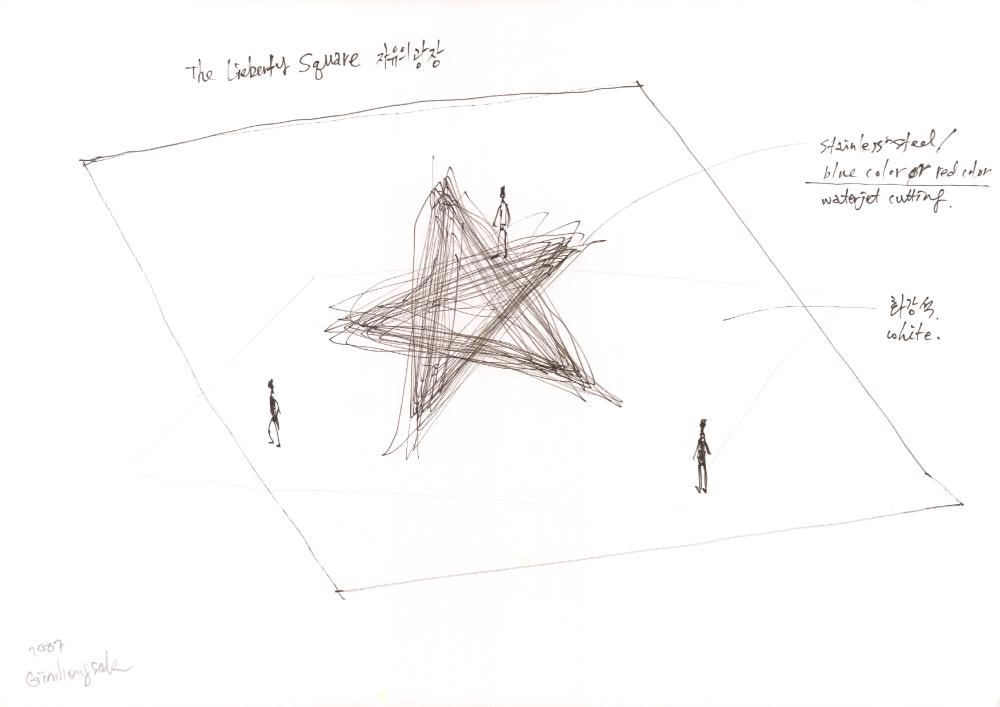 The Lieberty Square 자유의 광장
stainless steel/
blue color or red color
waterjet cutting.
화강석.
white.
Gimhongsok